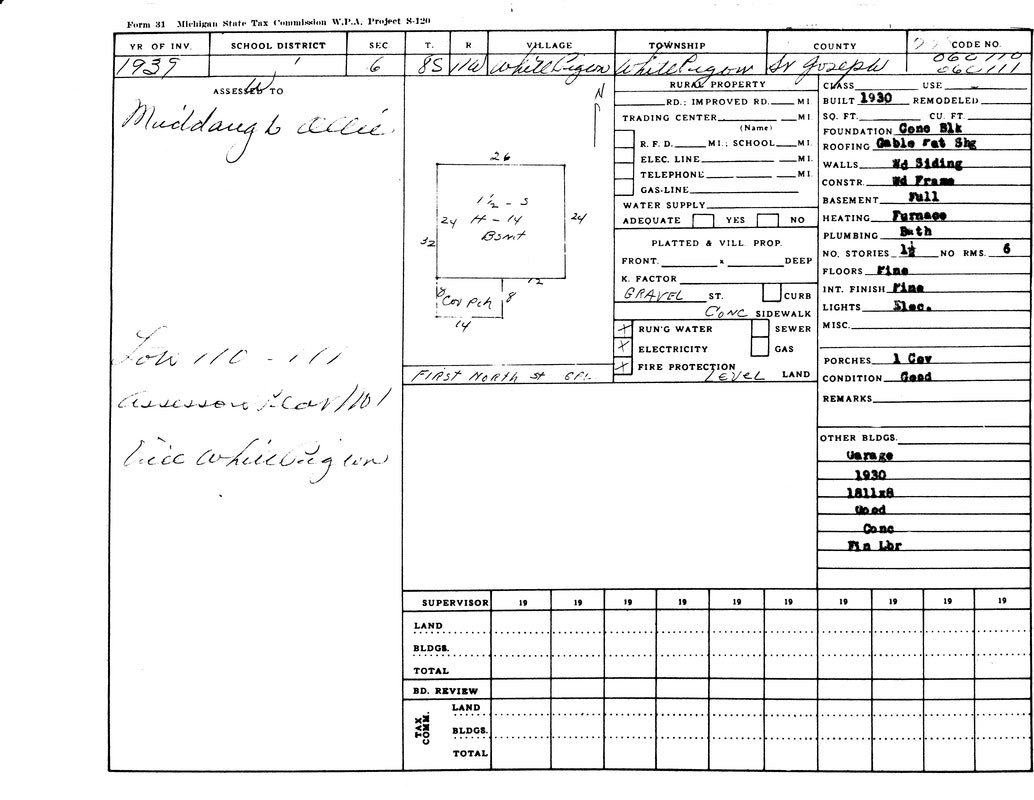 Form 31 Michigan State Tax Commission W.P.A. Project S-120
YR OF INV. SCHOOL DISTRICT SEC T. R VILLAGE TOWNSHIP COUNTY CODE NO.
1939 1 6 8S 11W White Pigeon White Pigeon St Joseph 060 110
060 111
ASSESSED TO
Middaugh Ollie
Lots 110 - 111
Assessors Plat No 1
Vill White Pigeon
N
26
1½ - S
H - 14
Bsmt
24 24
32
12
8 Cov Pch 8
14
First North St
RURAL PROPERTY
RD.; IMPROVED RD. MI.
TRADING CENTER MI.
(Name)
R. F. D. MI.; SCHOOL MI.
ELEC. LINE MI.
TELEPHONE MI.
GAS-LINE
WATER SUPPLY
ADEQUATE YES NO
PLATTED & VILL. PROP.
FRONT. x DEEP
K. FACTOR
GRAVEL ST. CURB
CONC SIDEWALK
X RUN'G WATER SEWER
X ELECTRICITY GAS
X FIRE PROTECTION
LEVEL LAND
CLASS USE
BUILT 1930 REMODELED
SQ. FT. CU. FT.
FOUNDATION Conc Blk
ROOFING Gable Pat Shg
WALLS Wd Siding
CONSTR. Wd Frame
BASEMENT Full
HEATING Furnace
PLUMBING Bath
NO. STORIES 1½ NO RMS. 6
FLOORS Pine
INT. FINISH Pine
LIGHTS Elec.
MISC.
PORCHES 1 Cov
CONDITION Good
REMARKS
OTHER BLDGS.
Garage
1930
1811x8
Good
Conc
Fin Lbr
SUPERVISOR 19 19 19 19 19 19 19 19 19 19
LAND
BLDGS.
TOTAL
BD. REVIEW
TAX COMM.
LAND
BLDGS.
TOTAL